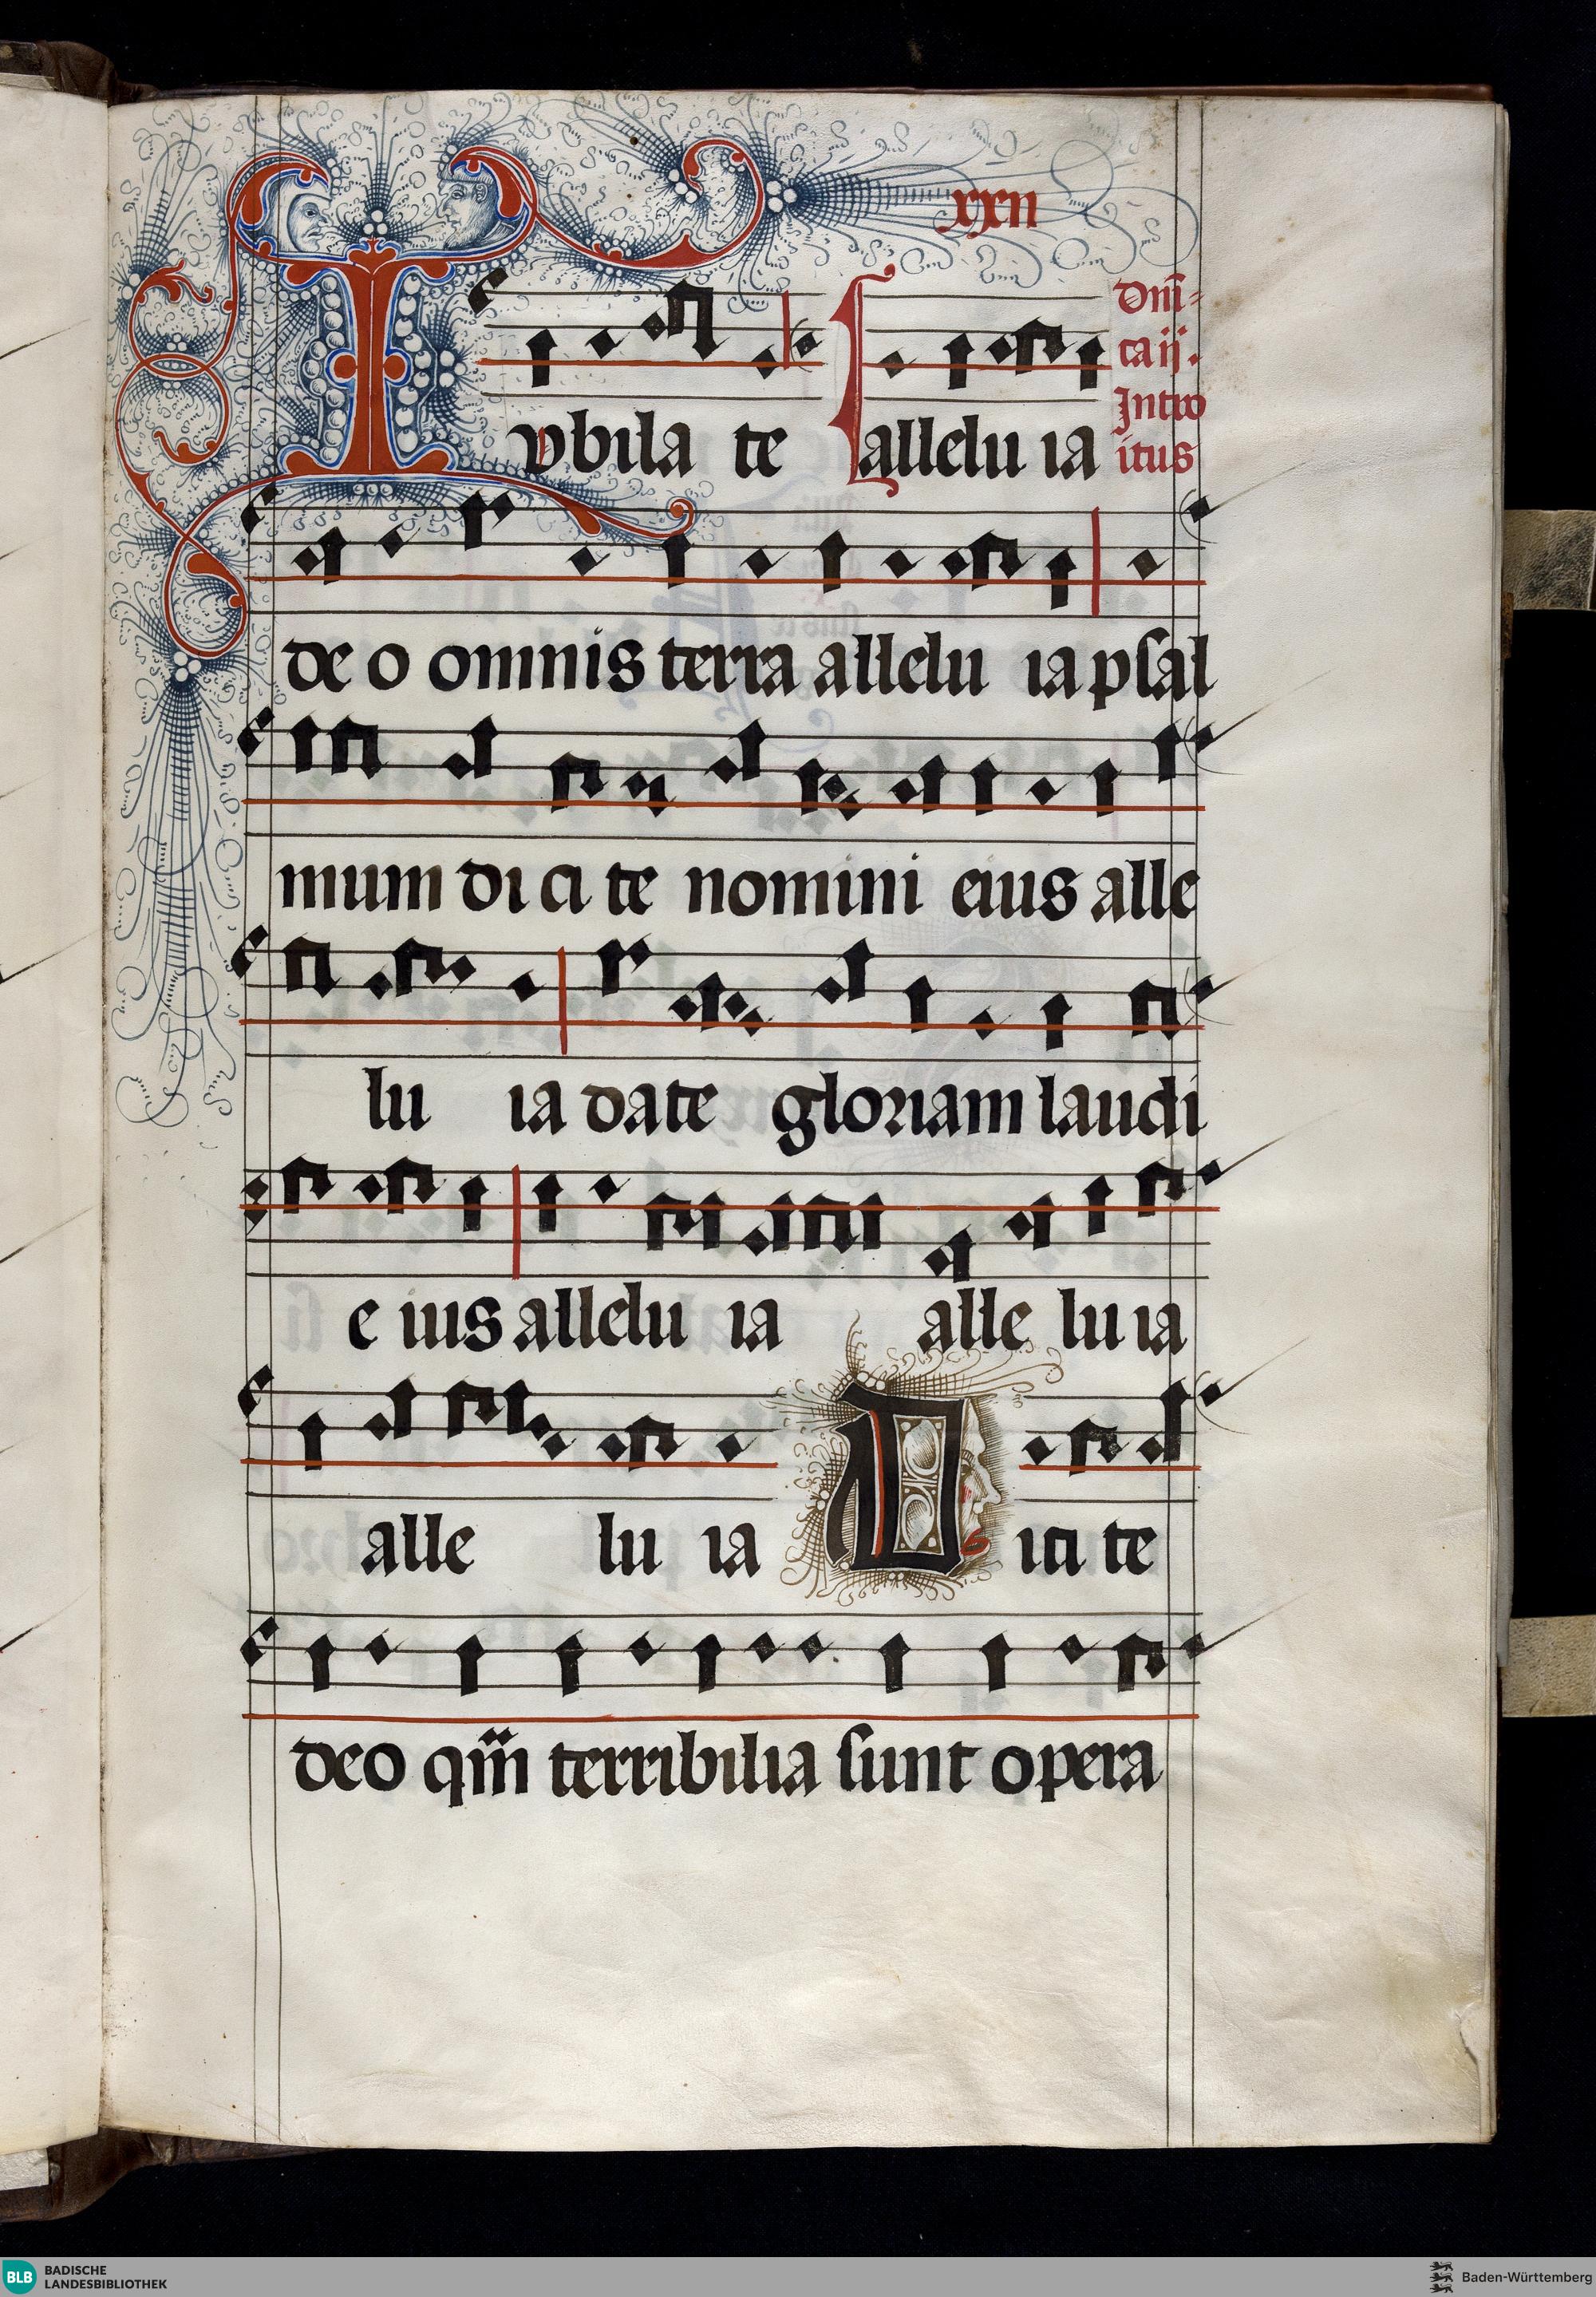 xxii
Iubila te allelu ia
Dm̄
ca ij.
Intro
itus
de o omnis terra allelu ia psal
mum di ci te nomini eius alle
lu ia date gloriam laudi
e ius allelu ia alle lu ia
alle lu ia Dici te
deo qm̄ terribilia sunt opera
BLB BADISCHE LANDESBIBLIOTHEK
Baden-Württemberg